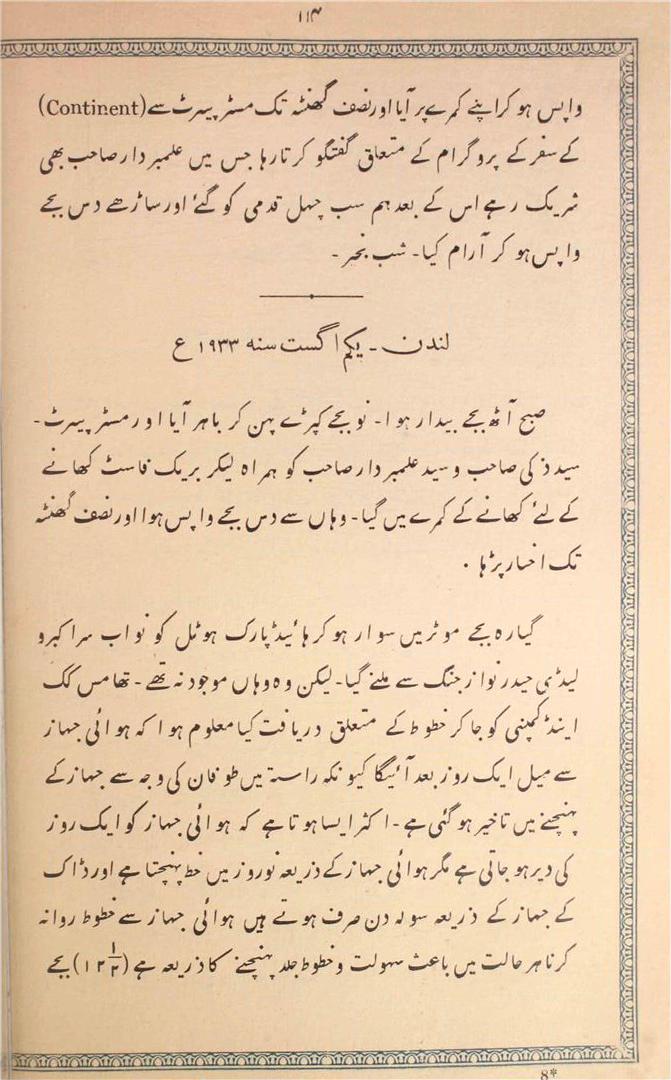 ۱۱۳
واپس ہو کر اپنے کمرے پر آیا اور نصف گھنٹہ تک مسٹر پیرٹ سے (Continent)
کے سفر کے پروگرام کے متعلق گفتگو کرتا رہا جس میں علمبردار صاحب بھی
شریک رہے اس کے بعد ہم سب چہل قدمی کو گئے اور ساڑھے دس بجے
واپس ہو کر آرام کیا۔ شب بخیر ۔
لندن ۔ یکم اگست سنه ۱۹۳۳ ع
صبح آٹھ بجے بیدار ہوا۔ نو بجے کپڑے پہن کر باہر آیا اور مسٹر پیرٹ۔
سید ذکی صاحب و سید علمبردار صاحب کو ہمراہ لیکر بریک فاسٹ کھانے
کے لئے کھانے کے کمرے میں گیا۔ وہاں سے دس بجے واپس ہوا اور نصف گھنٹہ
تک اخبار پڑہا ۔
گیارہ بجے موٹر میں سوار ہو کر ہائیڈ پارک ہوٹل کو نواب سر اکبر و
لیڈی حیدر نواز جنگ سے ملنے گیا۔ لیکن وہ وہاں موجود نہ تھے ۔ تھامس کک
اینڈ کمپنی کو جا کر خطوط کے متعلق دریافت کیا معلوم ہوا کہ ہوائی جہاز
سے میل ایک روز بعد آئیگا کیونکہ راستہ میں طوفان کی وجہ سے جہاز کے
پہنچنے میں تاخیر ہو گئی ہے ۔ اکثر ایسا ہوتا ہے کہ ہوائی جہاز کو ایک روز
کی دیر ہو جاتی ہے مگر ہوائی جہاز کے ذریعہ نو روز میں خط پہنچتا ہے اور ڈاک
کے جہاز کے ذریعہ سولہ دن صرف ہوتے ہیں ہوائی جہاز سے خطوط روانہ
کرنا ہر حالت میں باعث سہولت و خطوط جلد پہنچنے کا ذریعہ ہے (۱۲ ۱/۲) بجے
8*